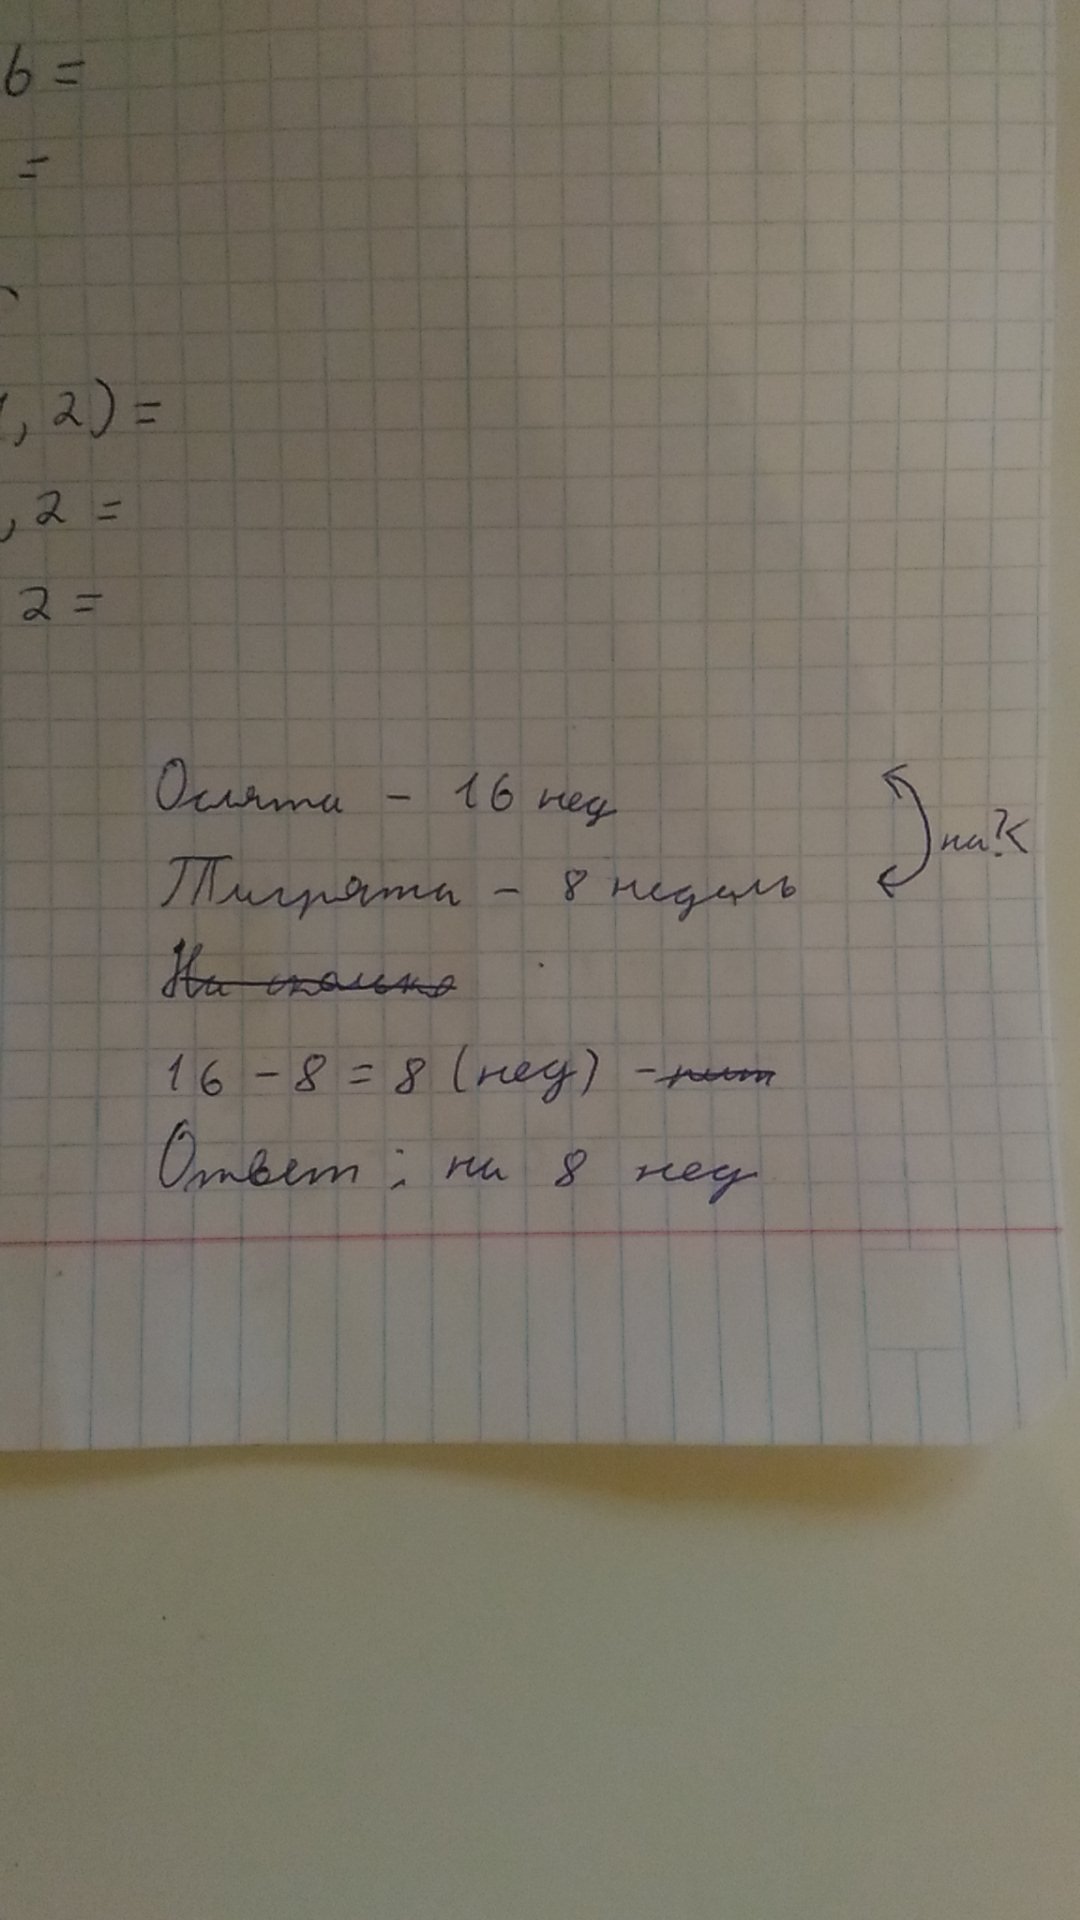 6 =
=
, 2) =
, 2 =
2 =
Ослята - 16 нед
Тигрята - 8 недель
на ? <
На сколько
16 - 8 = 8 (нед) -
Ответ : на 8 нед